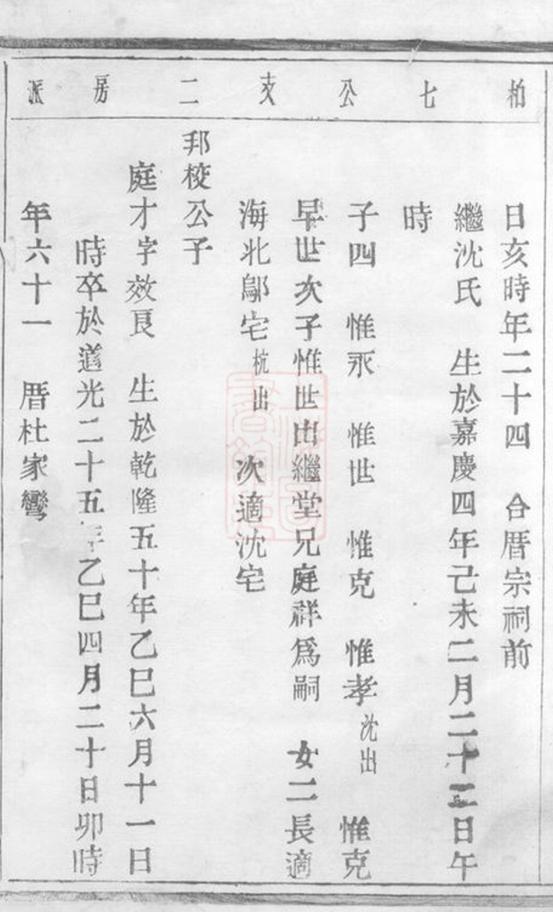 柏七公支二房派
日亥時年二十四　合厝宗祠前
繼沈氏　生於嘉慶四年己未二月二十三日午
時
子四　惟永　惟世　惟克　惟孝沈出　惟克
早世次子惟世出繼堂兄庭祥為嗣　女二長適
海北鄔宅杭出　次適沈宅
邦校公子
庭才字效良　生於乾隆五十年乙巳六月十一日
時卒於道光二十五年乙巳四月二十日卯時
年六十一　厝杜家彎